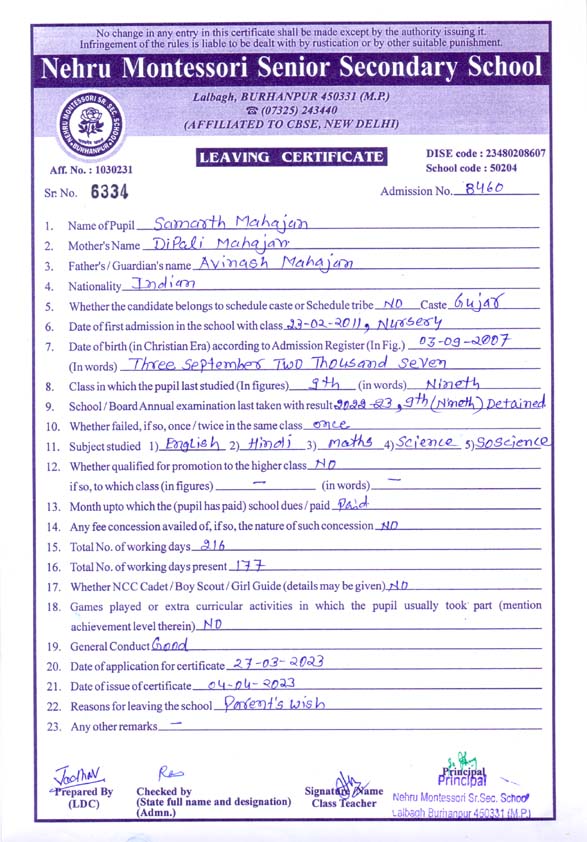 No change in any entry in this certificate shall be made except by the authority issuing it.
Infringement of the rules is liable to be dealt with by rustication or by other suitable punishment.
Nehru Montessori Senior Secondary School
Lalbagh, BURHANPUR 450331 (M.P.)
☎ (07325) 243440
(AFFILIATED TO CBSE, NEW DELHI)
NEHRU MONTESSORI SR. SEC. SCHOOL
BURHANPUR
LEAVING CERTIFICATE
DISE code : 23480208607
Aff. No. : 1030231
School code : 50204
Sr. No. 6334
Admission No. 8460
1. Name of Pupil Samarth Mahajan
2. Mother's Name Dipali Mahajan
3. Father's / Guardian's name Avinash Mahajan
4. Nationality Indian
5. Whether the candidate belongs to schedule caste or Schedule tribe NO Caste Gujar
6. Date of first admission in the school with class 23-02-2011, Nursery
7. Date of birth (in Christian Era) according to Admission Register (In Fig.) 03-09-2007
(In words) Three September Two Thousand Seven
8. Class in which the pupil last studied (In figures) 9th (in words) Nineth
9. School / Board Annual examination last taken with result 2022-23, 9th (Nineth) Detained
10. Whether failed, if so, once / twice in the same class once
11. Subject studied 1) English 2) Hindi 3) Maths 4) Science 5) SoScience
12. Whether qualified for promotion to the higher class NO
if so, to which class (in figures) — (in words) —
13. Month upto which the (pupil has paid) school dues / paid Paid
14. Any fee concession availed of, if so, the nature of such concession NO
15. Total No. of working days 216
16. Total No. of working days present 177
17. Whether NCC Cadet / Boy Scout / Girl Guide (details may be given) NO
18. Games played or extra curricular activities in which the pupil usually took part (mention
achievement level therein) NO
19. General Conduct Good
20. Date of application for certificate 27-03-2023
21. Date of issue of certificate 04-04-2023
22. Reasons for leaving the school Parent's wish
23. Any other remarks —
Jadhav
Prepared By
(LDC)
Checked by
(State full name and designation)
(Admn.)
Signature / Name
Class Teacher
Principal
Principal
Nehru Montessori Sr.Sec. School
Lalbagh Burhanpur 450331 (M.P.)